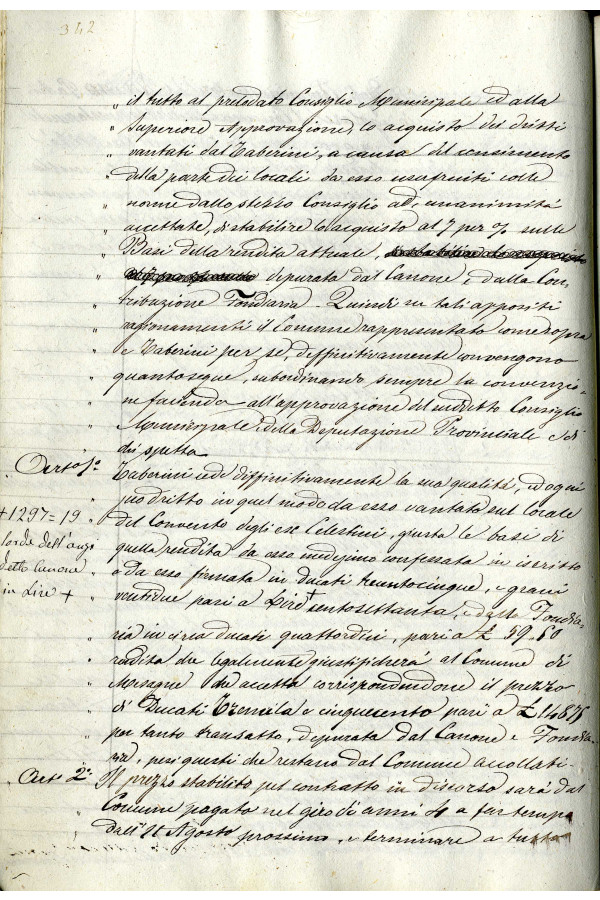 342
„ il tutto al prelodato Consiglio Municipale ed alla
„ Superiore Approvazione, lo acquisto dei dritti
„ vantati dal Taberini, a causa del censimento
„ della parte dei locali da esso usufruiti colle
„ norme dallo stesso Consiglio ad unanimità
„ accettate, di stabilire lo acquisto al 7 per % sulle
„ Basi della rendita attuale,
„ depurata dal Canone, e dalla Con,,
„ tribuzione Fondiaria. Quindi su tali appositi
„ ragionamenti il Comune rappresentato come sopra
„ e Taberini per se, diffinitivamente convengono
„ quanto segue, subordinando sempre la convenzio=
„ ne facienda all'approvazione del suddetto Consiglio
„ Municipale, e della Deputazione Provinciale e di
„ chi spetta
Art.o 1.o Taberini cede diffinitivamente la sua qualità, ed ogni
„ suo dritto in quel modo da esso vantato sul locale
„ del Convento degli ex Celestini, giusta le base di
„ quella rendita da esso medesimo confessata in iscritto
„ e da esso firmata in ducati trecentocinque, e grani
„ ventidue pari a Lire + centosettanta, e dalla Fondia,,
„ ria in circa ducati quattordici, pari a £ 59.50
„ rendita che legalmente giustificherà al Comune di
„ Mesagne che accetta corrispondendone il prezzo
„ di Ducati Tremila e cinquecento pari a £ 14875
„ per tanto transatto, depurata dal Canone e Fondia,,
„ ria, pesi questi che restano dal Comune accollati.
+ 1297=19
lorde dell'anzi
detto Canone
in Lire +
Art.o 2.o Il prezzo stabilito pel contratto in discorso sarà dal
„ Comune pagato nel giro di anni 4 a far tempo
„ dall' Agosto prossimo, e terminare a tutto